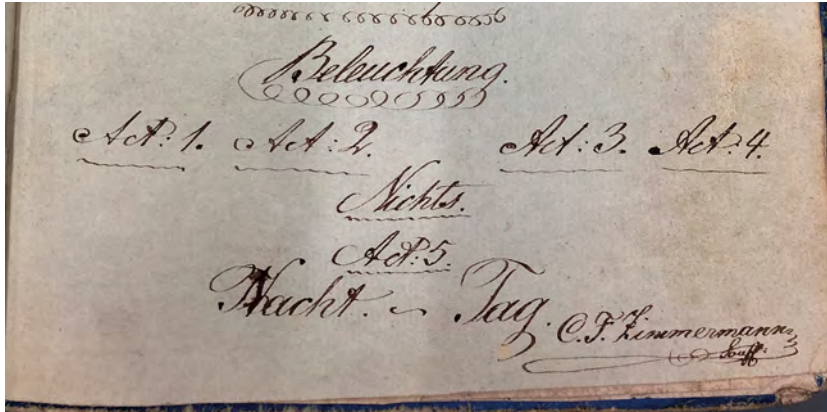 Beleuchtung.
Act: 1. Act: 2. Act: 3. Act: 4.
Nichts.
Act: 5.
Nacht. ~ Tag.
C. F. Zimmermann,
Souff: